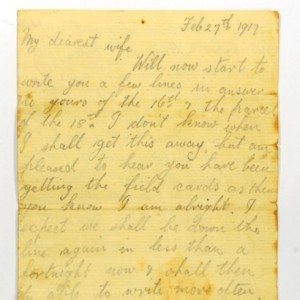 Feb 27th 1917
My dearest wife
Will now start to
write you a few lines in answer
to yours of the 16th & the
of the 18th I don't know when
I shall get this away, but am
pleased to hear you have been
getting the field cards as then
you know I am alright. I
expect we shall be down the
line again in less than a
fortnight now & shall then
be able to write more often